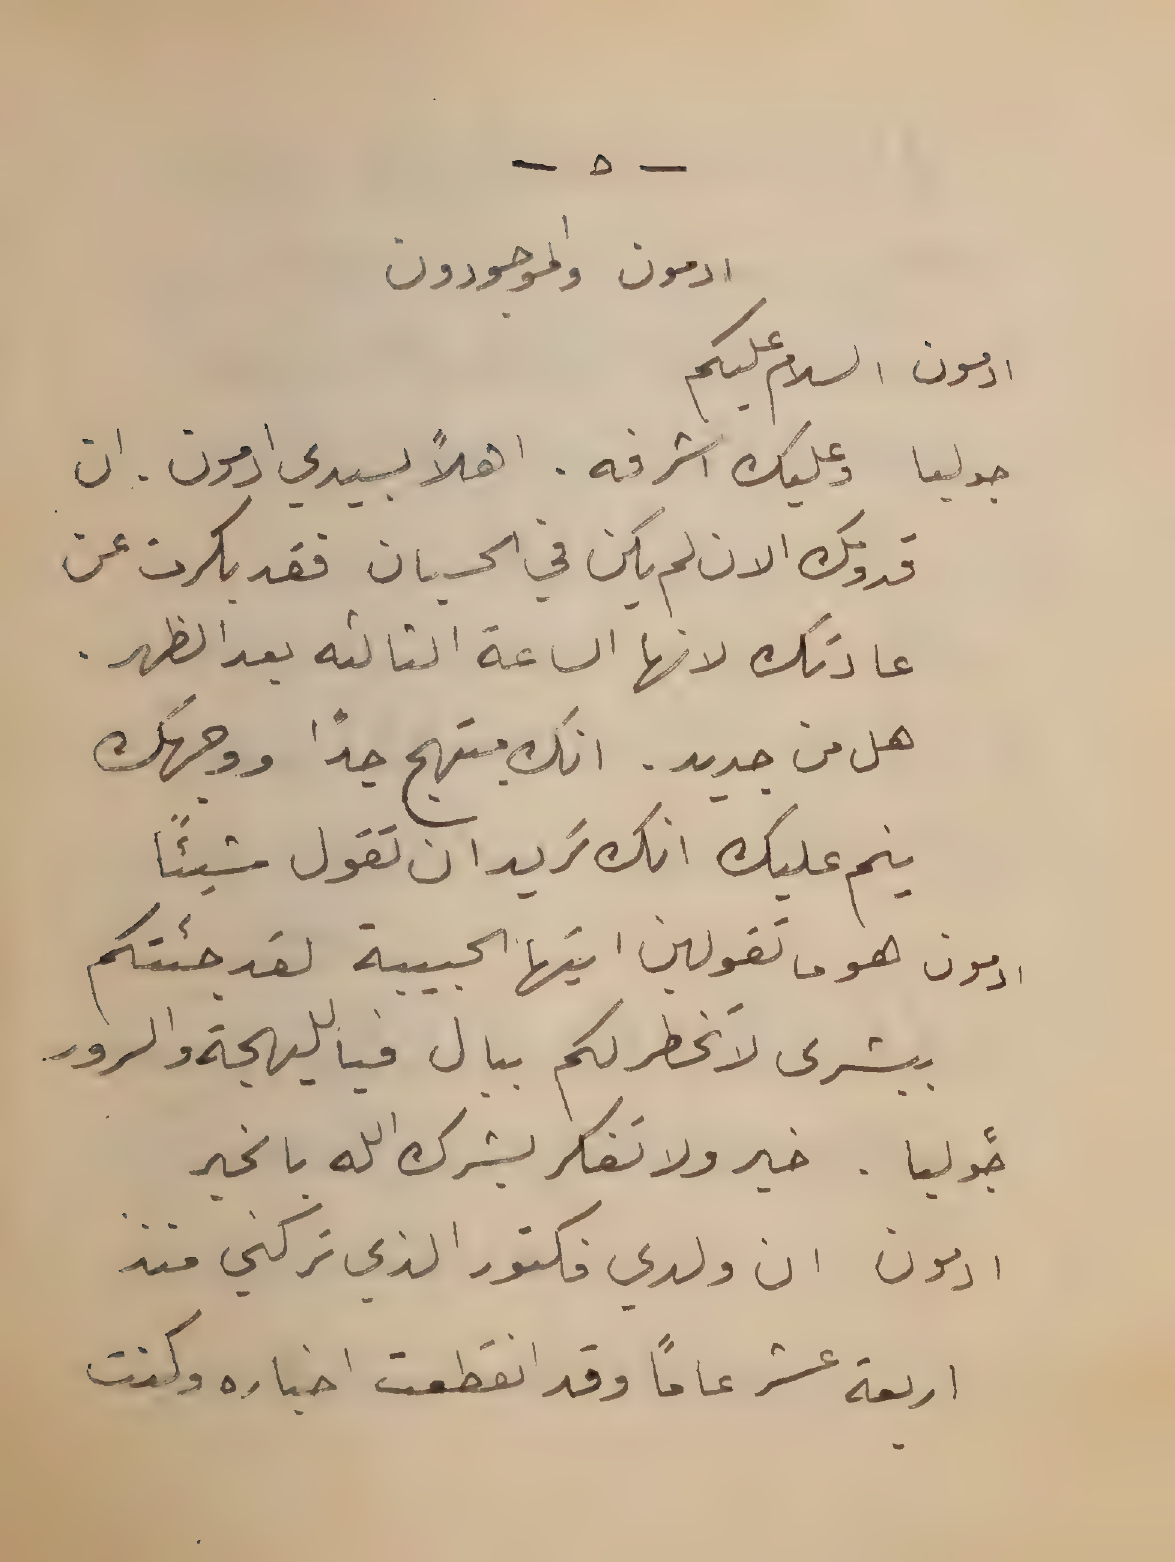 — ٥ —
ادمون والموجودون
ادمون السلام عليكم
جوليا وعليك اشرفه . اهلاً بسيدي ادمون . ان
قدومك الان لم يكن في الحسبان فقد بكرت عن
عادتك لانها الساعة الثالثه بعد الظهر .
هل من جديد . انك مبتهج جداً ووجهك
ينم عليك انك تريد ان تقول شيئاً
ادمون هو ما تقولين ايتها الحبيبة لقد جئتكم
ببشرى لا تخطر لكم ببال فيا للبهجة والسرور
جوليا . خير ولا تفكر بشرك الله بالخير
ادمون ان ولدي فكتور الذي تركني منذ
اربعة عشر عاماً وقد انقطعت اخباره وكنت